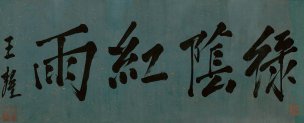 綠陰紅雨
王